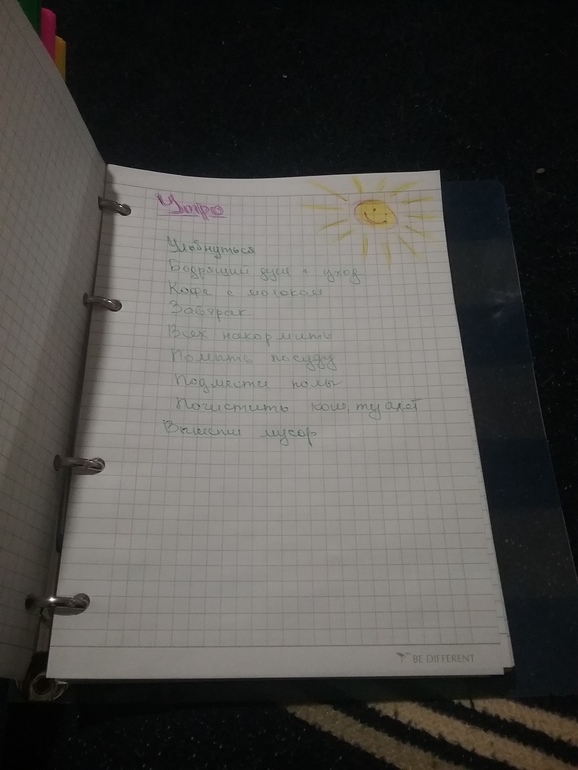 Утро
Улыбнуться
Бодрящий душ + уход
Кофе с молоком
Завтрак
Всех накормить
Помыть посуду
Подмести полы
Почистить кош. туалет
Вынести мусор
BE DIFFERENT